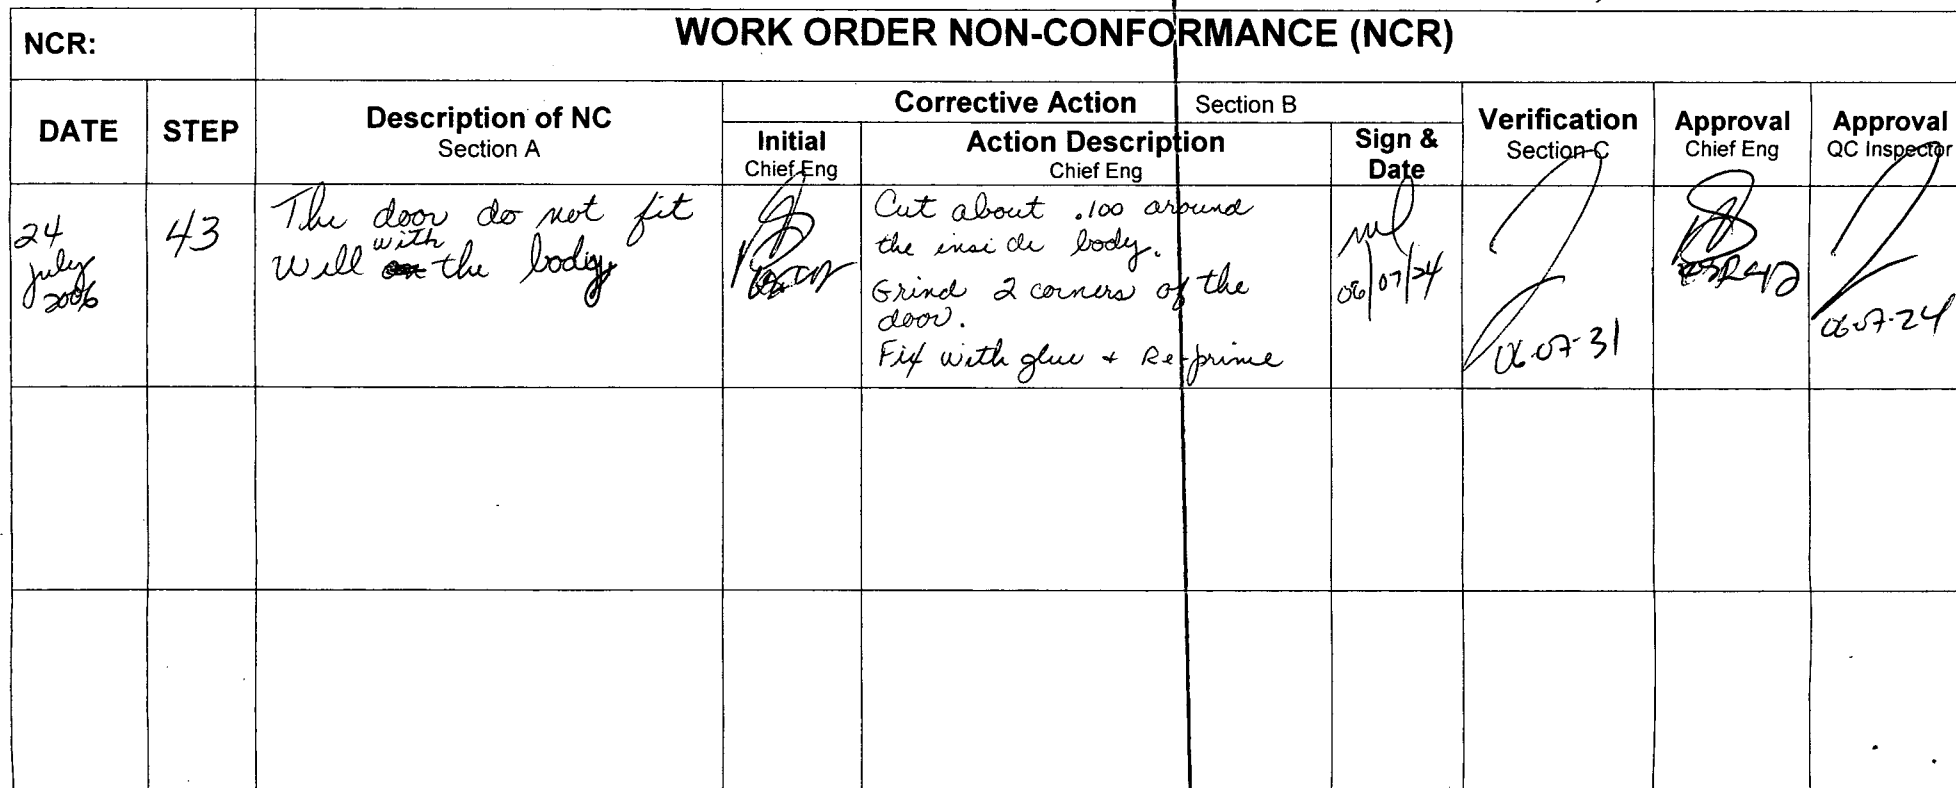 NCR:
WORK ORDER NON-CONFORMANCE (NCR)
DATE
STEP
Description of NC
Section A
Corrective Action Section B
Initial
Chief Eng
Action Description
Chief Eng
Sign &
Date
Verification
Section C
Approval
Chief Eng
Approval
QC Inspector
24
July
2006
43
The door do not fit
Well with the body
Cut about .100 around
the inside body.
Grind 2 corners of the
door.
Fix with glue + Re-prime
06/07/24
06-07-31
06-07-24